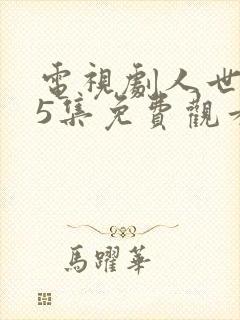 電視劇人世
5集免費觀
馬躍華